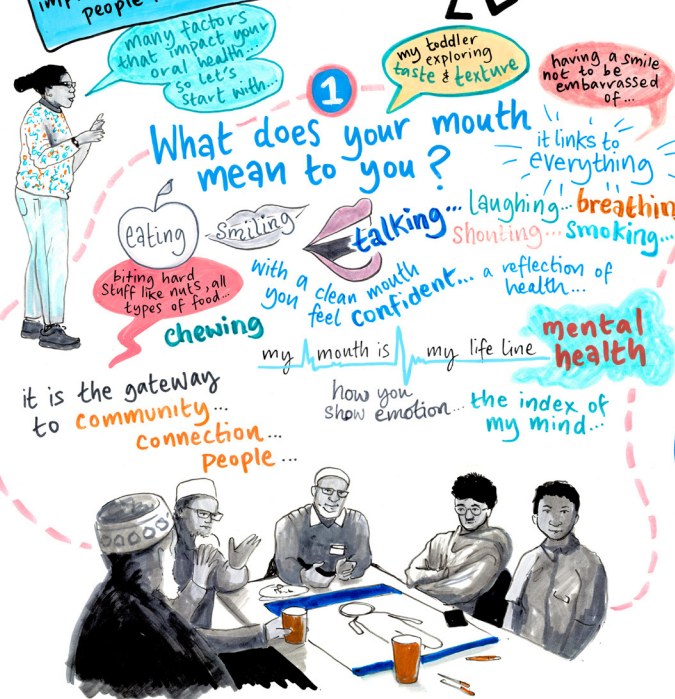 people
many factors
that impact your
oral health...
so let's
start with...
1
my toddler
exploring
taste & texture
having a smile
not to be
embarrassed
of...
What does your mouth
mean to you?
it links to
everything
eating
smiling
talking...
laughing...
breathin
shouting...
smoking...
biting hard
stuff like nuts, all
types of food...
chewing
with a clean mouth
you feel confident...
a reflection of
health...
my mouth is my life line
mental
health
it is the gateway
to community...
connection...
people...
how you
show emotion...
the index of
my mind...